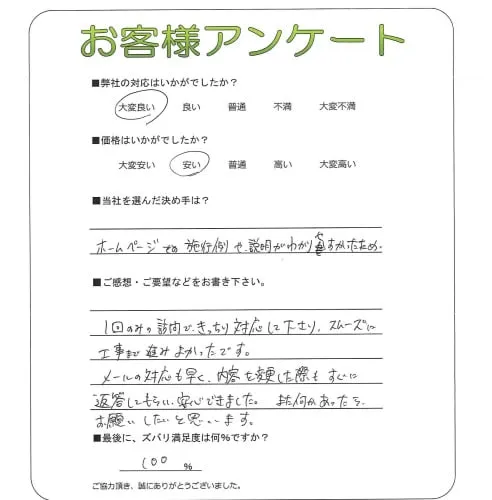 お客様アンケート
■弊社の対応はいかがでしたか？
大変良い 良い 普通 不満 大変不満
■価格はいかがでしたか？
大変安い 安い 普通 高い 大変高い
■当社を選んだ決め手は？
ホームページでの施行例や、説明がわかりやすかったため。
■ご感想・ご要望などをお書き下さい。
1回のみの訪問で、きっちり対応して下さり、スムーズに
工事まで進みよかったです。
メールの対応も早く、内容を変更した際もすぐに
返答してもらい、安心できました。また何かあったら、
お願いしたいと思います。
■最後に、ズバリ満足度は何％ですか？
100 ％
ご協力頂き、誠にありがとうございました。